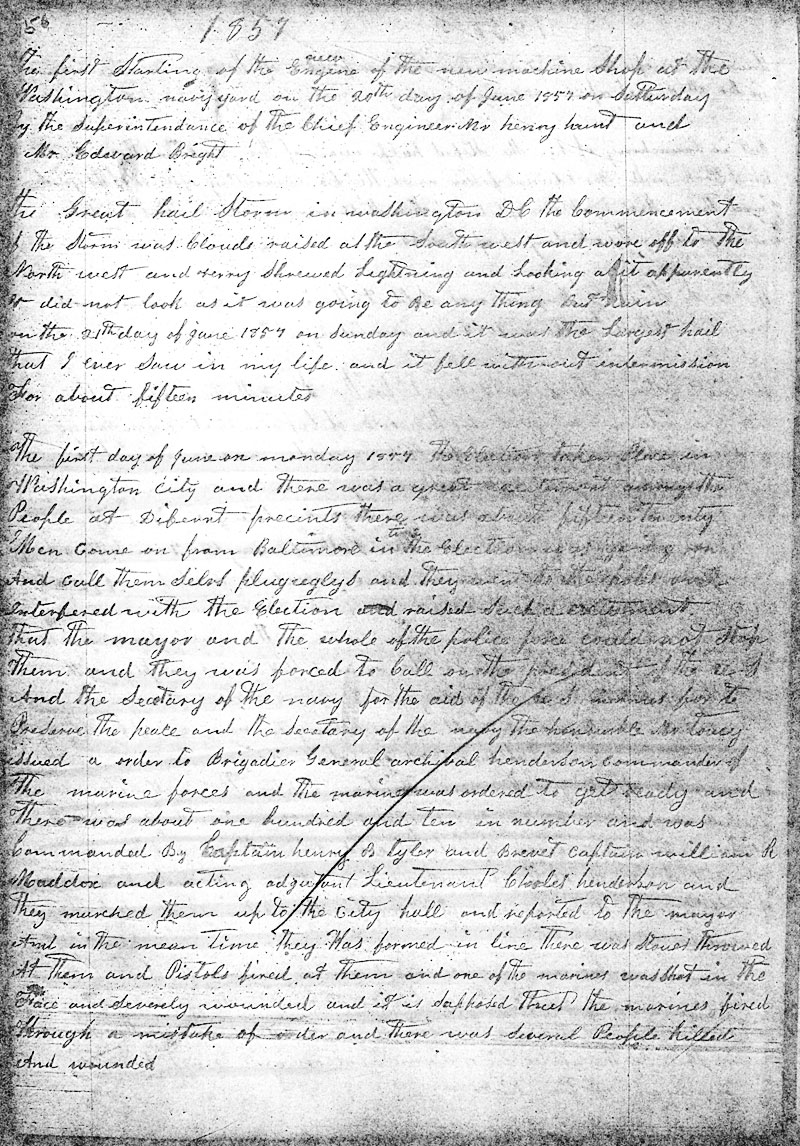 56
1857
The first Starting of the new Engine of the new machine Shop at the
Washington navy yard on the 20th day of June 1857 on Satturday
by the Superintendance of the Chief Engineer Mr henry hunt and
Mr Edward Bright
the Great hail Storm in washington DC the Commencement
of the Storm was Clouds raised at the South west and wore off to the
North west and verry Shrewed Lightning and Looking at it apparently
it did not look as it was going to Be any thing but rain
on the 21th day of June 1857 on Sunday and it was the Largest hail
that I ever Saw in my life and it fell without intermission
For about fifteen minutes
The first day of June on monday 1857 the Election taken Place in
Washington City and there was a great excitement among the
People at Difernt precints there was about fifteen twenty
Men Come on from Baltimore in the time the Election was going on
And Call them Selvs plugeuglys and they went to the poles and
Interfered with the Election and raised Such a excitement
that the mayor and the whole of the police force could not Stop
them and they was forced to Call on the president of the U S
And the Secetary of the navy for the aid of the U.S. marines for to
Preserve the peace and the Secetary of the navy the honorable Mr Toucy
issued a order to Brigadier General archibal henderson Commander of
The marine forces and the marines was ordered to get ready and
There was about one hundred and ten in number and was
Commanded By Captain henry B Tyler and Brevet Captain william R
Maddox and acting adjutant Lieutenant Charles henderson and
they marched them up to the City hall and reported to the mayor
And in the mean time they Was formed in line there was Stones throwed
At them and Pistols fired at them and one of the marines was Shot in the
Face and Severely wounded and it is Suposed that the marines fired
through a mistake of order and there was Several People Killed
And wounded